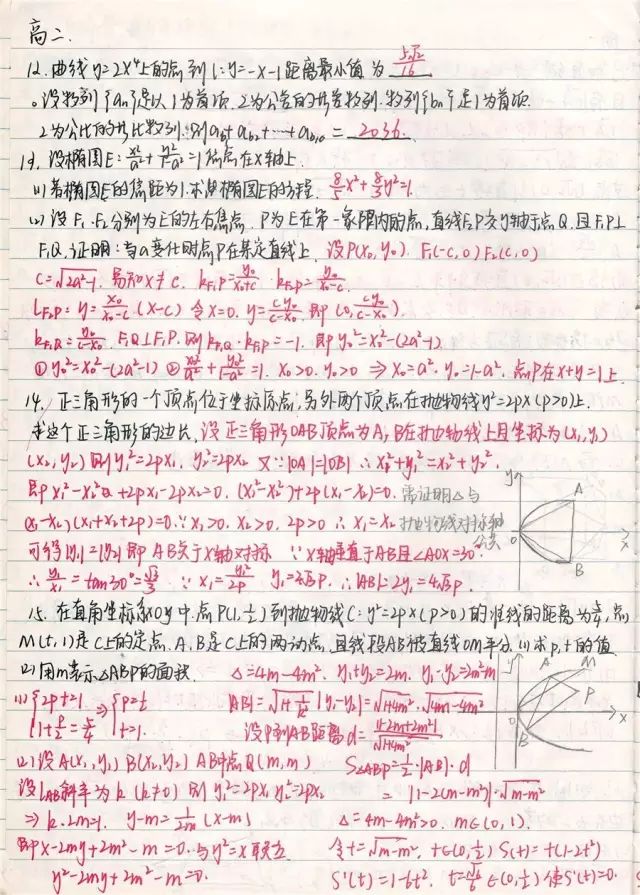 高二.
12. 曲线y=2x⁴上的点到l:y=-x-1距离最小值为 5√2/16
。设数列{an}是以1为首项.2为公差的等差数列.数列{bn}是1为首项
2为公比的等比数列.则ab₁+ab₂+…+ab₁₀= 2036.
13. 设椭圆E:x²/a²+y²/1-a²=1焦点在x轴上.
(1)若椭圆E的焦距为1.求出椭圆E的方程. 8/5x²+8/3y²=1.
(2)设F₁.F₂分别为E的左右焦点. P为E在第一象限内的点,直线F₂P交y轴于点Q.且F₁P⊥
F₁Q.证明:当a变化时点P在某定直线上. 设P(x₀,y₀). F₁(-c,0) F₂(c,0)
c=√2a²-1. 易知x₀≠c. kF₁P=y₀/x₀+c. kF₂P=y₀/x₀-c.
LF₂P:y=y₀/x₀-c(x-c) 令x=0. y=cy₀/c-x₀. 即(0,cy₀/c-x₀).
kF₁Q=y₀/c-x₀. F₁Q⊥F₁P.则kF₁Q·kF₁P=-1. 即y₀²=x₀²-(2a²-1)
①y₀²=x₀²-(2a²-1) ②x₀²/a²+y₀²/1-a²=1. x₀>0. y₀>0 ⇒ x₀=a². y₀=1-a². 点P在x+y=1上.
14. 正三角形的一个顶点位于坐标原点.另外两个顶点在抛物线y²=2px(p>0)上.
求这个正三角形的边长. 设正三角形OAB顶点为A,B在抛物线上且坐标为(x₁,y₁)
(x₂,y₂)则y₁²=2px₁. y₂²=2px₂ 又∵|OA|=|OB| ∴x₁²+y₁²=x₂²+y₂².
即x₁²-x₂²+2px₁-2px₂=0. (x₁²-x₂²)+2p(x₁-x₂)=0. 需证明△与
(x₁-x₂)(x₁+x₂+2p)=0.∵x₁>0. x₂>0. 2p>0 ∴x₁=x₂ 抛物线对称轴
可得|y₁|=|y₂|即AB关于x轴对称 ∵x轴垂直于AB且∠AOX=30° 公共 y A O x B
∴y₁/x₁=tan30°=√3/3 ∵x₁=y₁²/2p y₁=2√3p. ∴|AB|=2y₁=4√3p.
15. 在直角坐标系xOy中.点P(1,1/2)到抛物线C:y²=2px(p>0)的准线的距离为5/4,点
M(t,1)是C上的定点.A.B是C上的两动点.且线段AB被直线OM平分.(1)求p,t的值
(2)用m表示△ABP的面积. △=4m-4m². y₁+y₂=2m. y₁·y₂=2m²-m
(1){2pt=1 1+p/2=5/4 ⇒{p=1/2 t=1. |AB|=√1+1/k²|y₁-y₂|=√1+4m²·√4m-4m² y A M P O x B
设P到AB距离d=|1-2m+2m²|/√1+4m²
(2)设A(x₁,y₁) B(x₂,y₂) AB中点Q(m,m) S△ABP=1/2·|AB|·d
设LAB斜率为k(k≠0) 则y₁²=2px₁ y₂²=2px₂ =|1-2(m-m²)|·√m-m²
⇒k·2m=1. y-m=1/2m(x-m) △=4m-4m²>0. m∈(0,1).
即x-2my+2m²-m=0.与y²=x联立 令t=√m-m². t∈(0,1/2) S(t)=t(1-2t²)
y²-2my+2m²-m=0. S'(t)=1-6t². t=√6/6∈(0,1/2)使S'(t)=0.